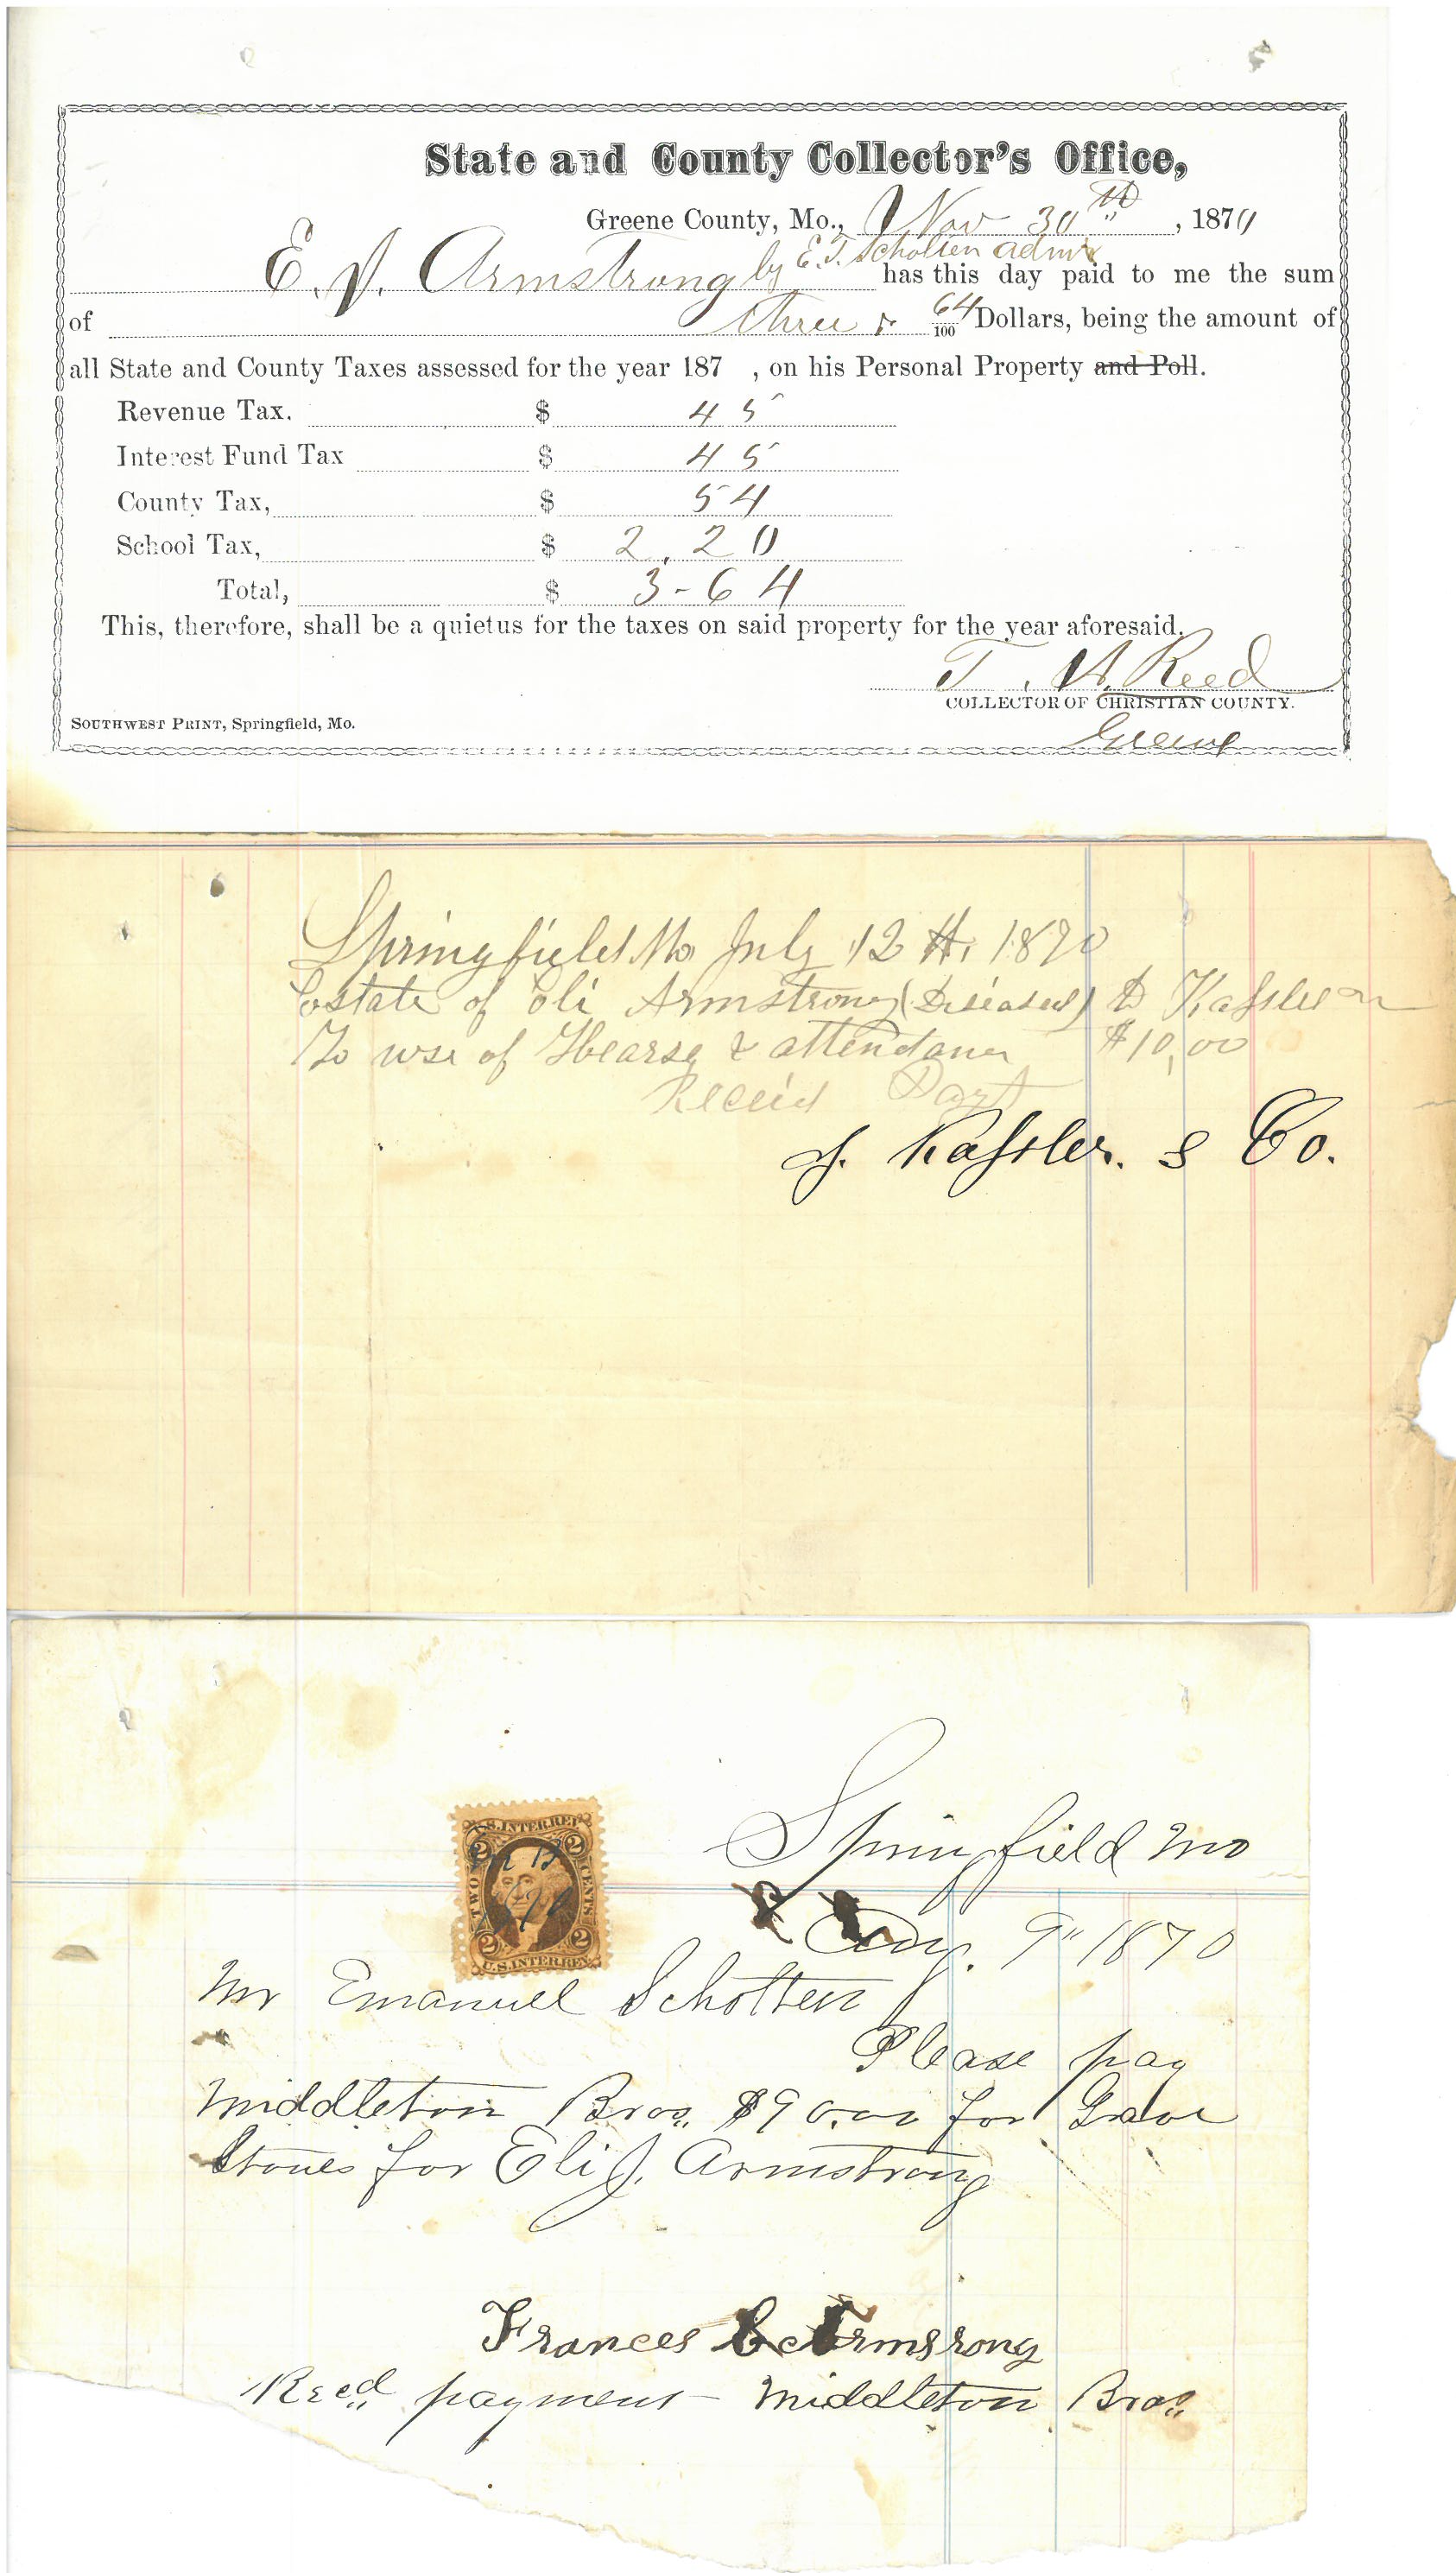 State and County Collector's Office,
Greene County, Mo., Nov 30th, 1870
E. J. Armstrong by E. T. Scholten admr has this day paid to me the sum
of three & 64/100 Dollars, being the amount of
all State and County Taxes assessed for the year 187 , on his Personal Property and Poll.
Revenue Tax. $ 45
Interest Fund Tax $ 45
County Tax, $ 54
School Tax, $ 2.20
Total, $ 3-64
This, therefore, shall be a quietus for the taxes on said property for the year aforesaid.
T. A. Reed
COLLECTOR OF CHRISTIAN COUNTY.
Greene
SOUTHWEST PRINT, Springfield, Mo.
Springfield Mo July 12th, 1870
Estate of Eli Armstrong (Diseased) D Kassler
To use of Hearse & attendance $10,00
Receid Payt
J. Kassler. & Co.
Springfield Mo
U.S. INTER. REV.
TWO CENTS
2 2
2 2
U.S. INTER. REV.
Aug. 9" 1870
Mr Emanuel Scholten
Please pay
Middleton Bros. $90.00 for Grave
Stones for Eli J. Armstrong
Frances C Armsrong
Recd payment - Middleton Bros.